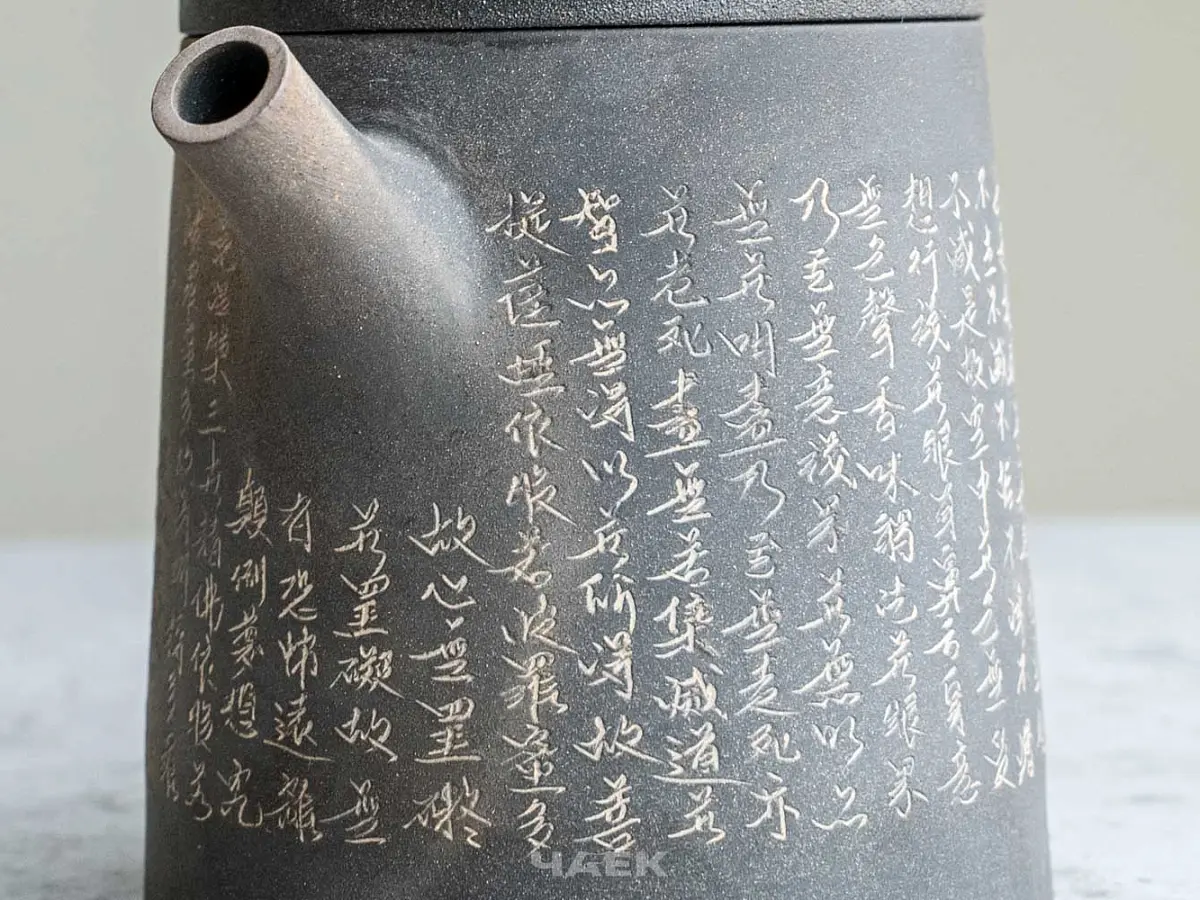 不減是故空中無色無受
想行識無眼耳鼻舌身意
無色聲香味觸法無眼界
乃至無意識界無無明亦
無無明盡乃至無老死亦
無老死盡無苦集滅道無
智亦無得以無所得故菩
提薩埵依般若波羅蜜多
故心無罣礙
無罣礙故無
有恐怖遠離
顛倒夢想究
三世諸佛依般若
ЧАЕК